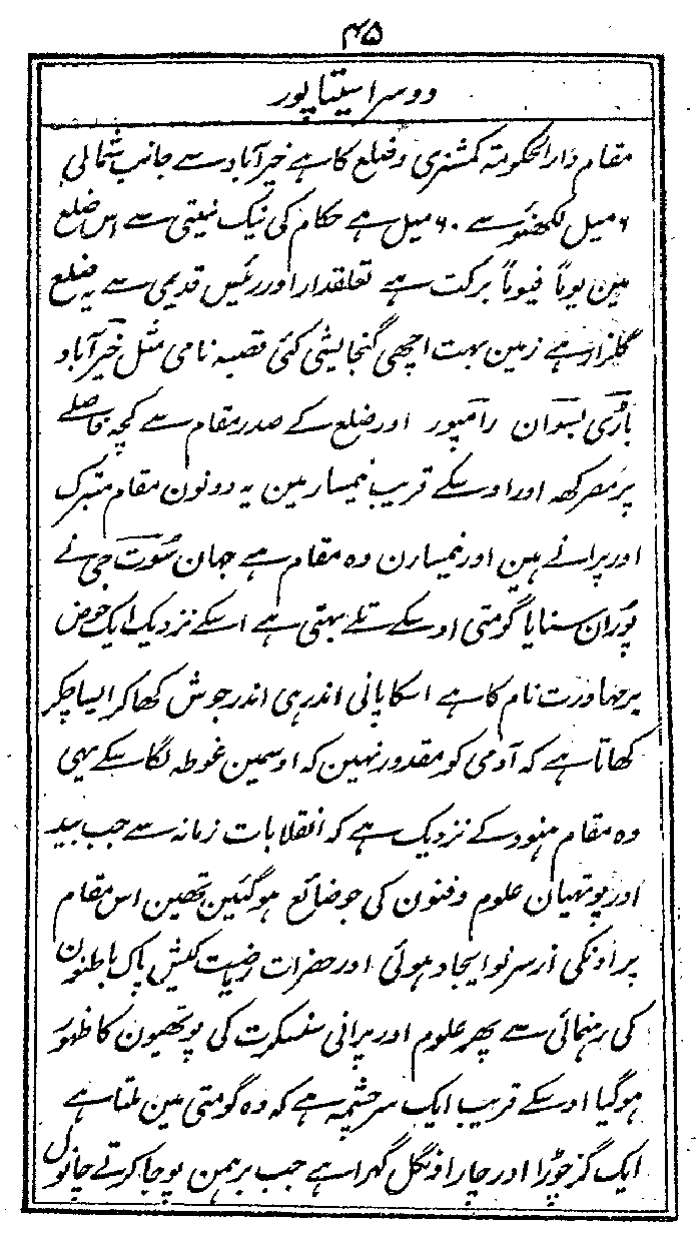 ۴۵
دوسرا سیتاپور
مقام دارالحکومۃ کمشنری و ضلع کا ہے خیرآباد سے جانب شمالی
۶ میل لکھنؤ سے ۶۰ میل ہے حکام کی نیک نیتی سے اس ضلع
مین یوماً فیوماً برکت ہے تعلقدار اور رئیس قدیمی سے یہ ضلع
گلزار ہے زمین بہت اچھی گنجایشی کئی قصبہ نامی مثل خیرآباد
باڑی بسوان رامپور اور ضلع کے صدر مقام سے کچہ فاصلے
پر مصرکھہ اور اوسکے قریب نیمسار مین یہ دونون مقام متبرک
اور پرانے ہین اور نیمسارن وہ مقام ہے جہان سُوت جی نے
پُوران سنایا گومتی اوسکے تلے بہتی ہے اسکے نزدیک ایک حوض
برمہاورت نام کا ہے اسکا پانی اندر ہی اندر جوش کھا کر ایسا چکر
کھاتا ہے کہ آدمی کو مقدور نہین کہ اوسمین غوطہ لگا سکے یہی
وہ مقام ہنود کے نزدیک ہے کہ انقلابات زمانہ سے جب بید
اور پوتھیان علوم و فنون کی جو ضائع ہوگئین تھین اس مقام
پر اونکی ازسرنو ایجاد ہوئی اور حضرات ریاضیت کیش پاک باطنون
کی رہنمائی سے پھر علوم اور پرانی سنسکرت کی پوتھیون کا ظہور
ہوگیا اوسکے قریب ایک سرچشمہ ہے کہ وہ گومتی مین ملتا ہے
ایک گز چوڑا اور چار اونگل گہرا ہے جب برہمن پوجا کرتے چانول